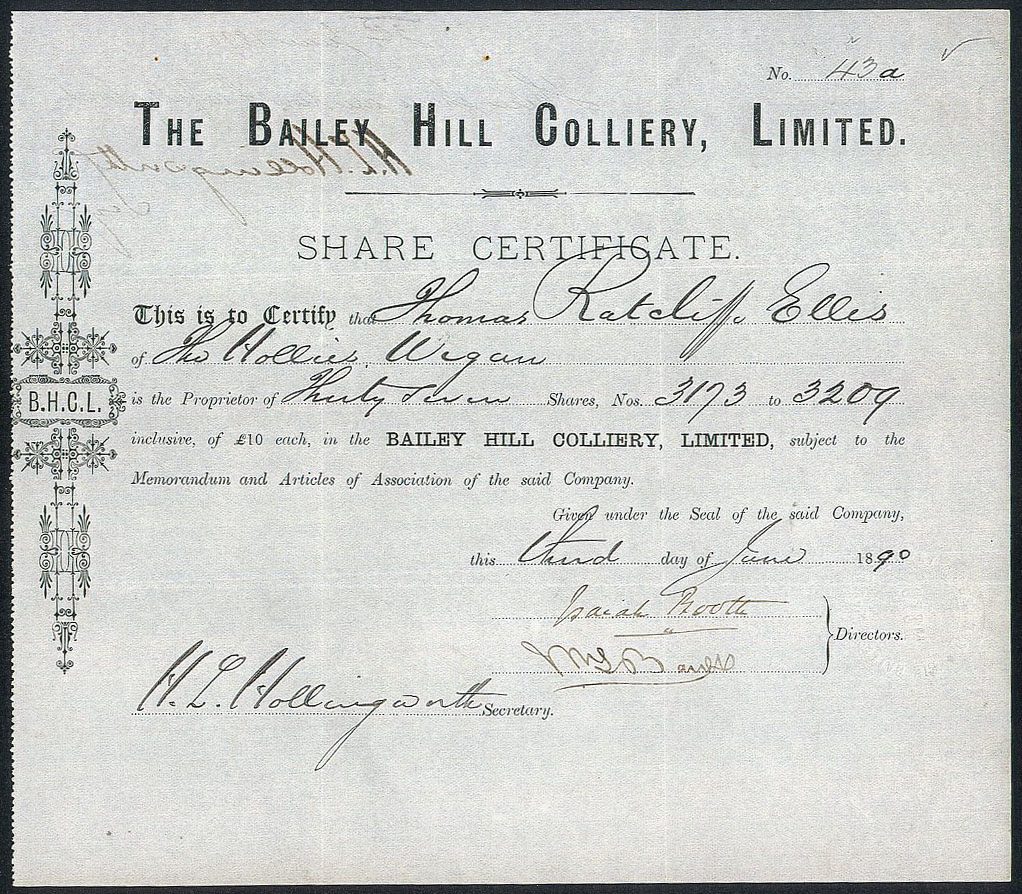 No. 43a
THE BAILEY HILL COLLIERY, LIMITED.
SHARE CERTIFICATE.
This is to Certify that Thomas Ratcliffe Ellis
of The Hollies Wigan
B.H.C.L.
is the Proprietor of Thirty Seven Shares, Nos. 3173 to 3209
inclusive, of £10 each, in the BAILEY HILL COLLIERY, LIMITED, subject to the
Memorandum and Articles of Association of the said Company.
Given under the Seal of the said Company,
this third day of June 1890
Isaiah Booth
Directors.
H. L. Hollingworth Secretary.